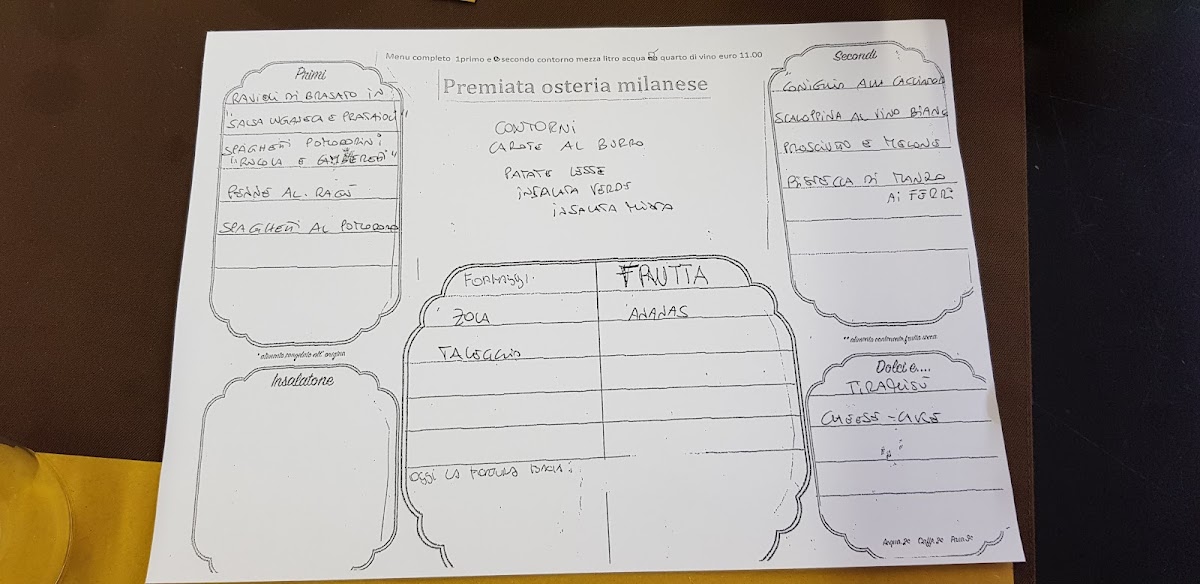 Menu completo 1primo e o secondo contorno mezza litro acqua quarto di vino euro 11.00
Premiata osteria milanese
Primi
RAVIOLI DI BRASATO IN
"SALSA LUGANEGA E PRATAIOLI"
SPAGHETTI POMODORINI
"RUCOLA E GAMBERETTI"
PENNE AL RAGÙ
SPAGHETTI AL POMODORO
* alimento congelato all' origine
Insalatone
CONTORNI
CAROTE AL BURRO
PATATE LESSE
INSALATA VERDE
INSALATA MISTA
FORMAGGI
ZOLA
TALEGGIO
FRUTTA
ANANAS
OGGI LA FORTUNA BACIA:
Secondi
CONIGLIO ALLA CACCIATORA
SCALOPPINA AL VINO BIANCO
PROSCIUTTO E MELONE
DI MANZO
AI FERRI
** alimento contenente frutta secca
Dolci e....
TIRAMISÙ
CHEESE-CAKE
Acqua 2e Caffè 2e Pane 3e